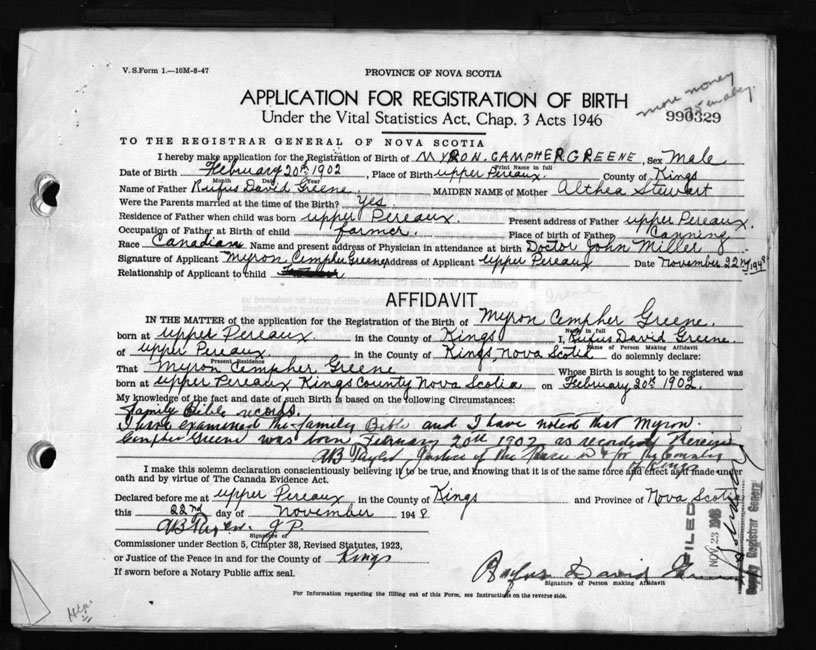 V. S. Form 1.—10M-8-47
PROVINCE OF NOVA SCOTIA
more money
APPLICATION FOR REGISTRATION OF BIRTH
Under the Vital Statistics Act, Chap. 3 Acts 1946
990329
TO THE REGISTRAR GENERAL OF NOVA SCOTIA
I hereby make application for the Registration of Birth of MYRON. CAMPHER GREENE, Sex Male
Print Name in full
Date of Birth February 20th 1902, Place of Birth upper Pereaux. County of Kings
Month Day Year
Name of Father Rufus David Greene. MAIDEN NAME of Mother Althea Stewart
Were the Parents married at the time of the Birth? yes.
Residence of Father when child was born upper Pereaux. Present address of Father upper Pereaux.
Occupation of Father at Birth of child farmer. Place of birth of Father Canning
Race Canadian Name and present address of Physician in attendance at birth Doctor John Miller
Signature of Applicant Myron Cempher Greene Address of Applicant upper Pereaux Date November 22nd 1948
Relationship of Applicant to child
AFFIDAVIT
IN THE MATTER of the application for the Registration of the Birth of Myron Cempher Greene.
Name in full
born at upper Pereaux in the County of Kings I, Rufus David Greene.
Name of Person Making Affidavit
of upper Pereaux. in the County of Kings, Nova Scotia do solemnly declare:
Present Residence
That Myron Cempher Greene Whose Birth is sought to be registered was
born at upper Pereaux Kings County Nova Scotia on February 20th 1902.
My knowledge of the fact and date of such Birth is based on the following Circumstances:
family Bible records.
I have examined the family Bible and I have noted that Myron
Cempher Greene was born February 20th 1902 as recorded therein
AB Taylor Justice of the Peace in & for the County
of Kings
I make this solemn declaration conscientiously believing it to be true, and knowing that it is of the same force and effect as if made under
oath and by virtue of The Canada Evidence Act.
Declared before me at upper Pereaux in the County of Kings and Province of Nova Scotia
this 22nd day of November 1948
AB Taylor J.P.
Signature of
Commissioner under Section 5, Chapter 38, Revised Statutes, 1923,
or Justice of the Peace in and for the County of Kings
If sworn before a Notary Public affix seal.
Rufus David Greene
Signature of Person making Affidavit
For Information regarding the filling out of this Form, see Instructions on the reverse side.
FILED
NOV 23 1948
Deputy Registrar General